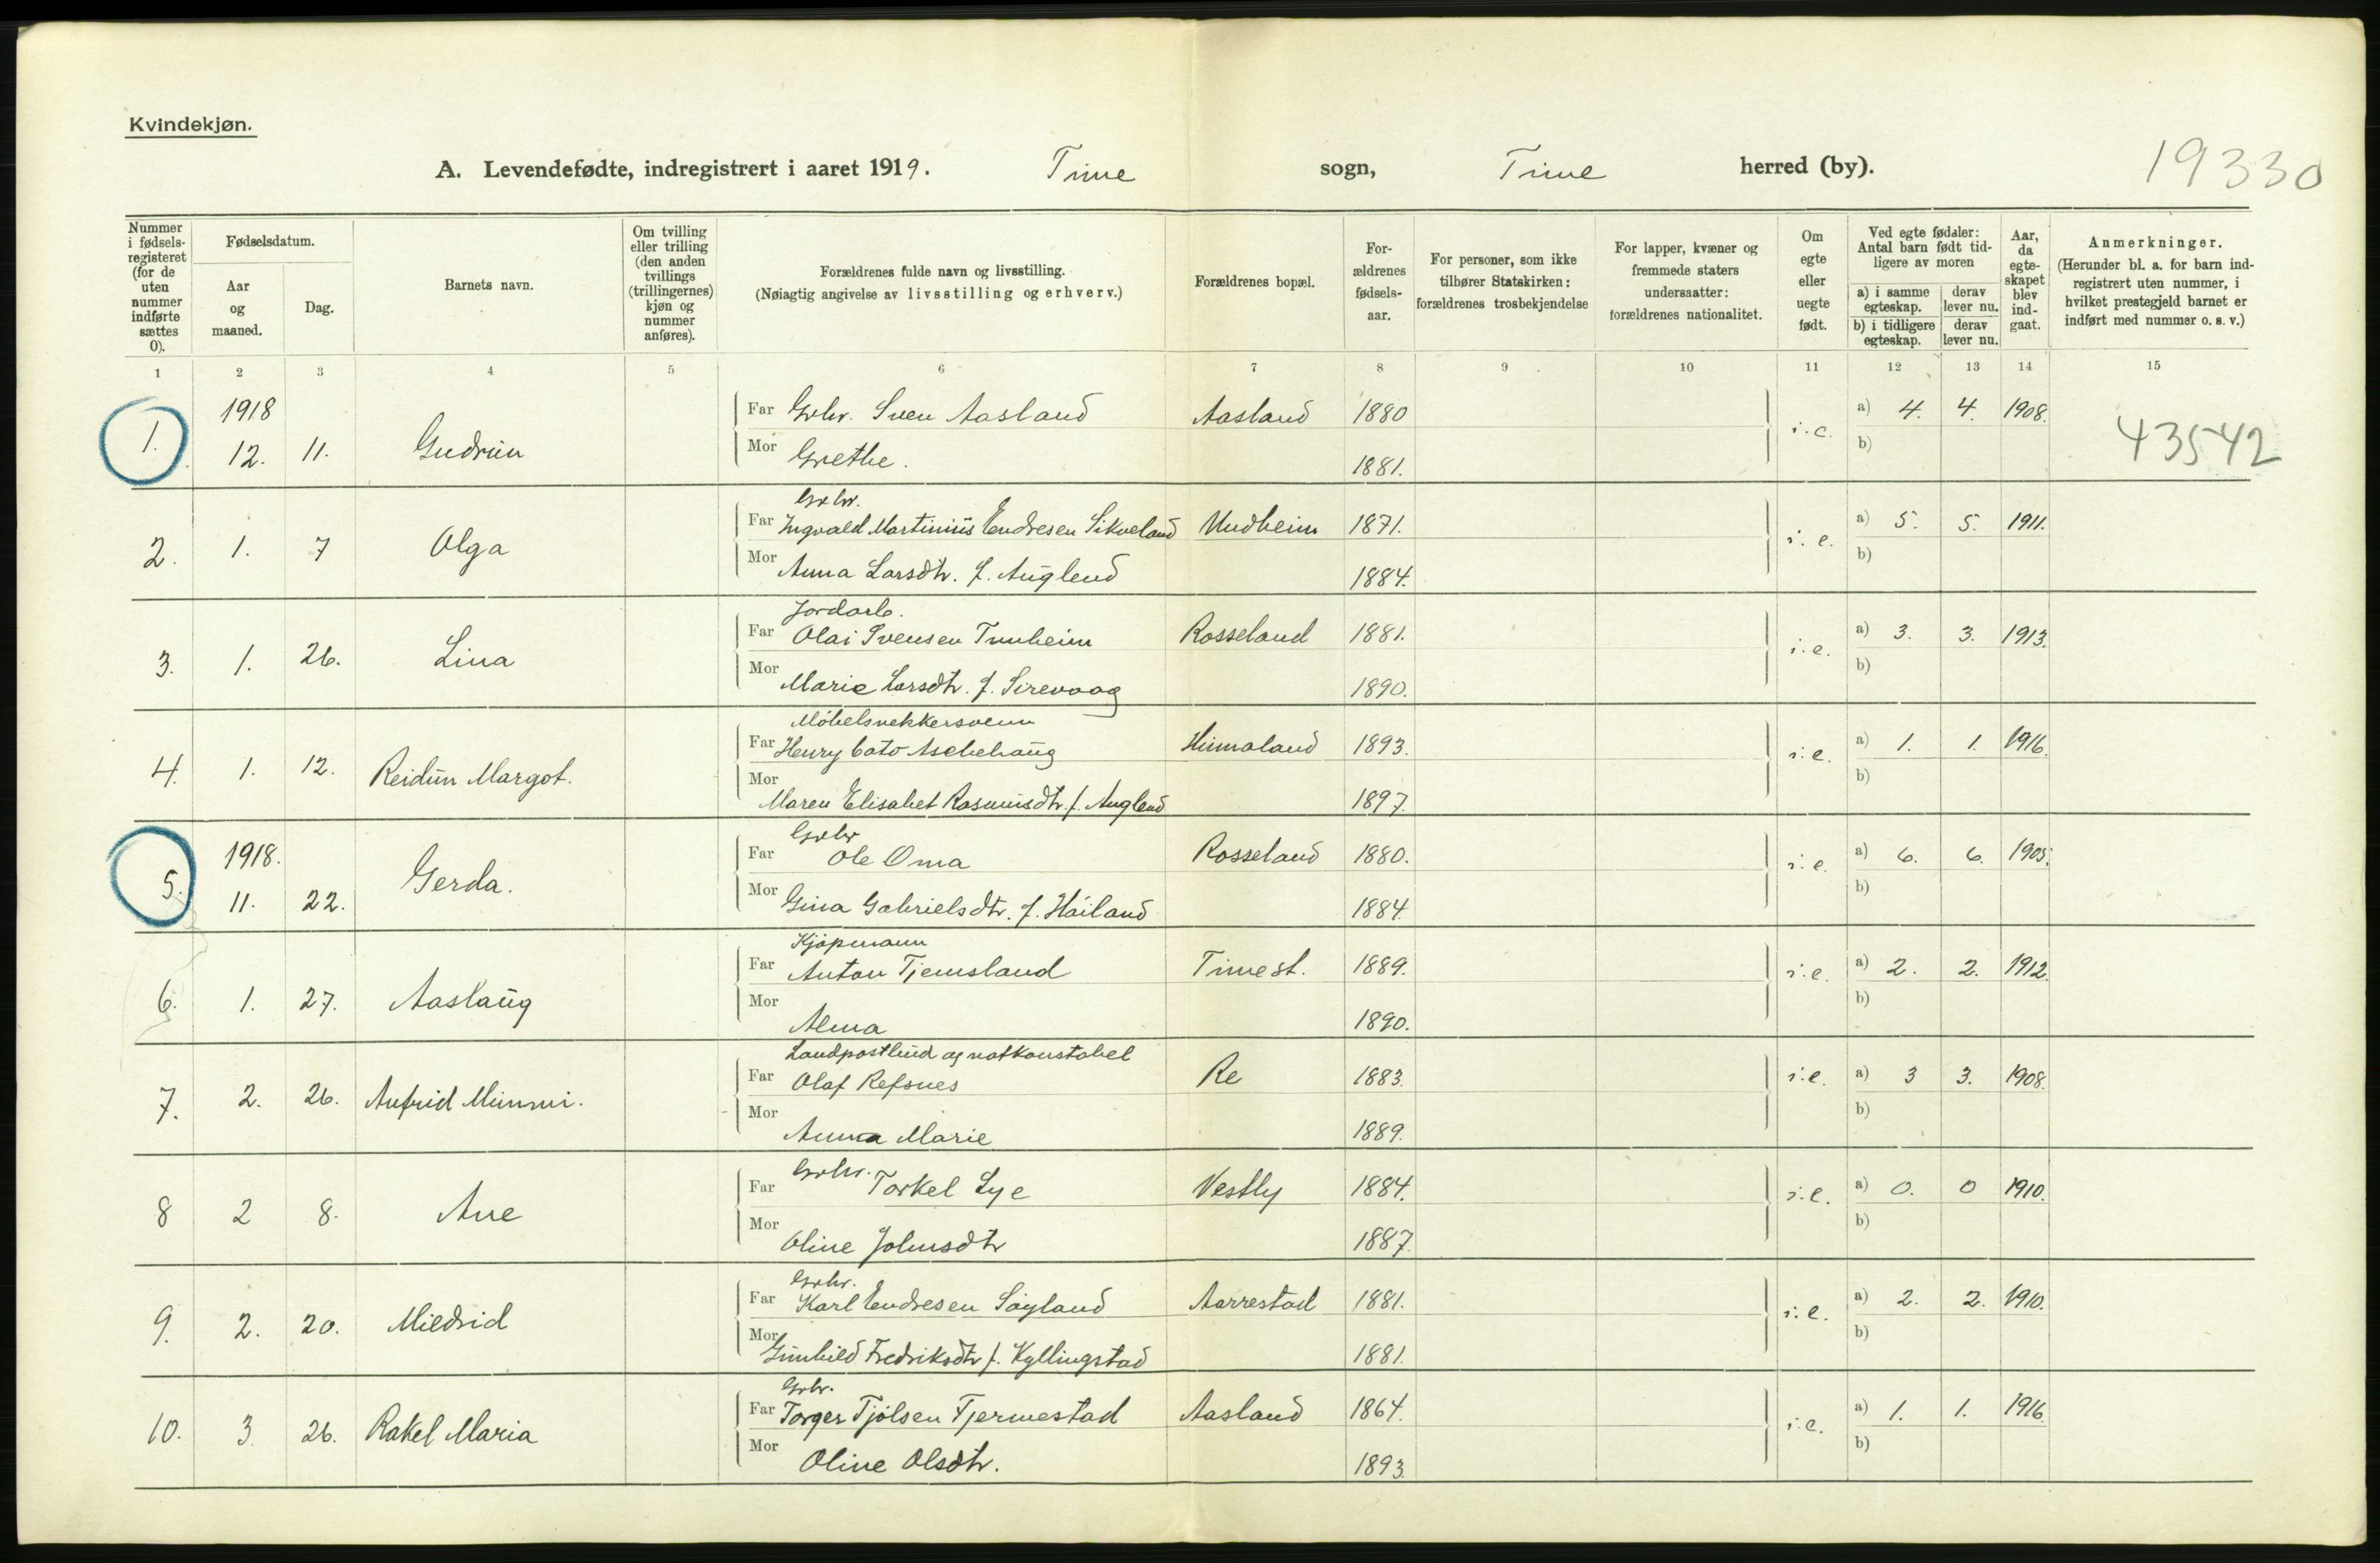 Kvindekjøn.
A. Levendefødte, indregistrert i aaret 1919. Time sogn, Time herred (by). 19330
Nummer i fødselsregisteret (for de uten nummer indførte sættes 0).
Fødselsdatum.
Aar og maaned.
Dag.
Barnets navn.
Om tvilling eller trilling (den anden tvillings (trillingernes) kjøn og nummer anføres).
Forældrenes fulde navn og livsstilling.
(Nøiagtig angivelse av livsstilling og erhverv.)
Forældrenes bopæl.
Forældrenes fødselsaar.
For personer, som ikke tilhører Statskirken: forældrenes trosbekjendelse
For lapper, kvæner og fremmede staters undersaatter: forældrenes nationalitet.
Om egte eller uegte født.
Ved egte fødsler: Antal barn født tidligere av moren
a) i samme egteskap. derav lever nu.
b) i tidligere egteskap. derav lever nu.
Aar, da egteskapet blev indgaat.
Anmerkninger.
(Herunder bl. a. for barn indregistrert uten nummer, i hvilket prestegjeld barnet er indført med nummer o. s. v.)
1 2 3 4 5 6 7 8 9 10 11 12 13 14 15
1918
Far Grbr. Sven Aasland Aasland 1880 a) 4. 4. 1908.
1. 12. 11. Gudrun i.e. b) 43542
Mor Grethe. 1881.
Grbr.
Far Ingvald Martinius Endresen Sikveland Undheim 1871. a) 5. 5. 1911.
2. 1. 7 Olga i.e. b)
Mor Anna Larsdtr. f. Auglend 1884.
Jordarb.
Far Olai Svensen Tunheim Rosseland 1881. a) 3. 3. 1913.
3. 1. 26. Lina i.e. b)
Mor Marie Larsdtr. f. Sirevaag 1890.
Møbelsnekkersvenn
Far Henry Cato Aschehaug Hinnaland 1893. a) 1. 1. 1916.
4. 1. 12. Reidun Margot. i.e. b)
Mor Maren Elisabet Rasmusdtr. f. Auglend 1897.
1918. Grbr
Far Ole Oma Rosseland 1880. a) 6. 6. 1905.
5. 11. 22. Gerda. i.e. b)
Mor Gina Gabrielsdtr. f. Håiland 1884.
Kjøpmann
Far Anton Tjemsland Time st. 1889. a) 2. 2. 1912.
6. 1. 27. Aaslaug i.e. b)
Mor Alma 1890.
Landpostbud og natkonstabel
Far Olaf Refsnes Re 1883. a) 3 3. 1908.
7. 2. 26. Anfrid Mimmi. i.e. b)
Mor Anna Marie 1889.
Grbr.
Far Torkel Lye Vestly 1884. a) 0. 0 1910.
8 2 8. Ane i.e. b)
Mor Oline Johnsdtr 1887.
Grbr.
Far Karl Endresen Søyland Aarrestad 1881. a) 2. 2. 1910.
9. 2. 20. Mildrid i.e. b)
Mor Gunhild Fredriksdtr f. Kyllingstad 1881.
Grbr.
Far Torger Tjølsen Fjermestad Aasland 1864. a) 1. 1. 1916.
10. 3. 26. Rakel Maria i.e. b)
Mor Oline Olsdtr. 1893.